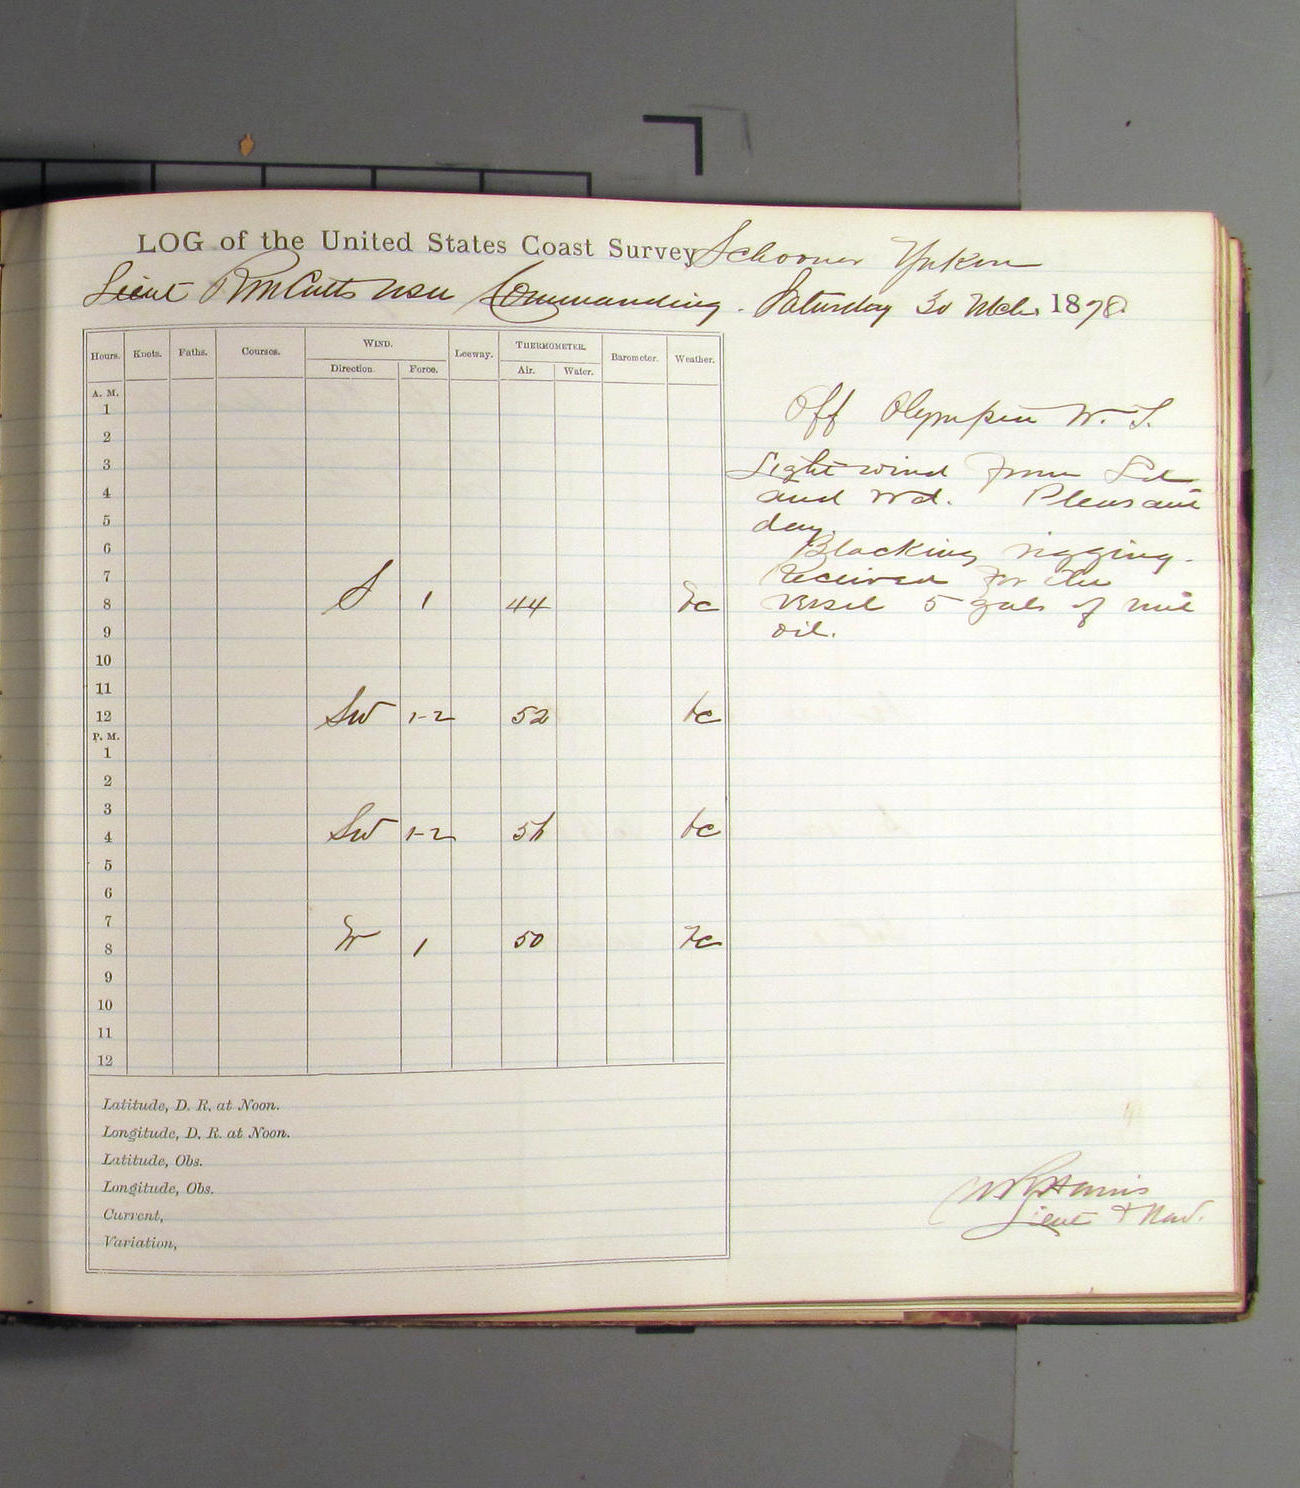 LOG of the United States Coast Survey Schooner Yukon
Lieut R M Cutts USN Commanding. Saturday 30 Mch. 1878.
Hours. Knots. Faths. Courses. WIND. Leeway. THERMOMETER. Barometer. Weather.
Direction. Force. Air. Water.
A. M.
1
2
3
4
5
6
7
8 S 1 44 bc
9
10
11
12 SW 1-2 52 bc
P. M.
1
2
3
4 SW 1-2 56 bc
5
6
7
8 W 1 50 bc
9
10
11
12
Latitude, D. R. at Noon.
Longitude, D. R. at Noon.
Latitude, Obs.
Longitude, Obs.
Current,
Variation,
Off Olympia W. T.
Light wind from Sd
and Wd. Pleasant
day.
Blacking rigging.
Received for the
vessel 5 gals of
oil.
Harris
Lieut & Nav.